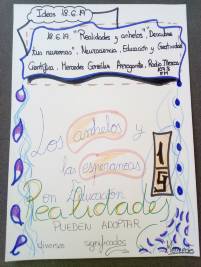 Ideas 18.6.19
18.6.19. "Realidades y anhelos", Descubre
tus neuronas", Neurociencia, Educación y Creatividad
Científica, Mercedes González
Los anhelos y
las esperanzas
en Educación
Realidades
PUEDEN ADOPTAR
diversos significados